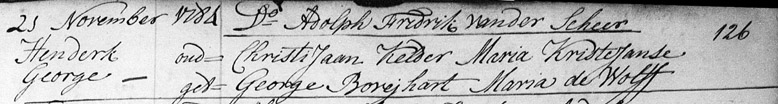 21 November 1784 Do Adolph Fredrik vander Scheer 126
Henderk oud= Christi Jaan Kelder Maria Kristejanse
George — get= George Borejhart Maria de Wolff